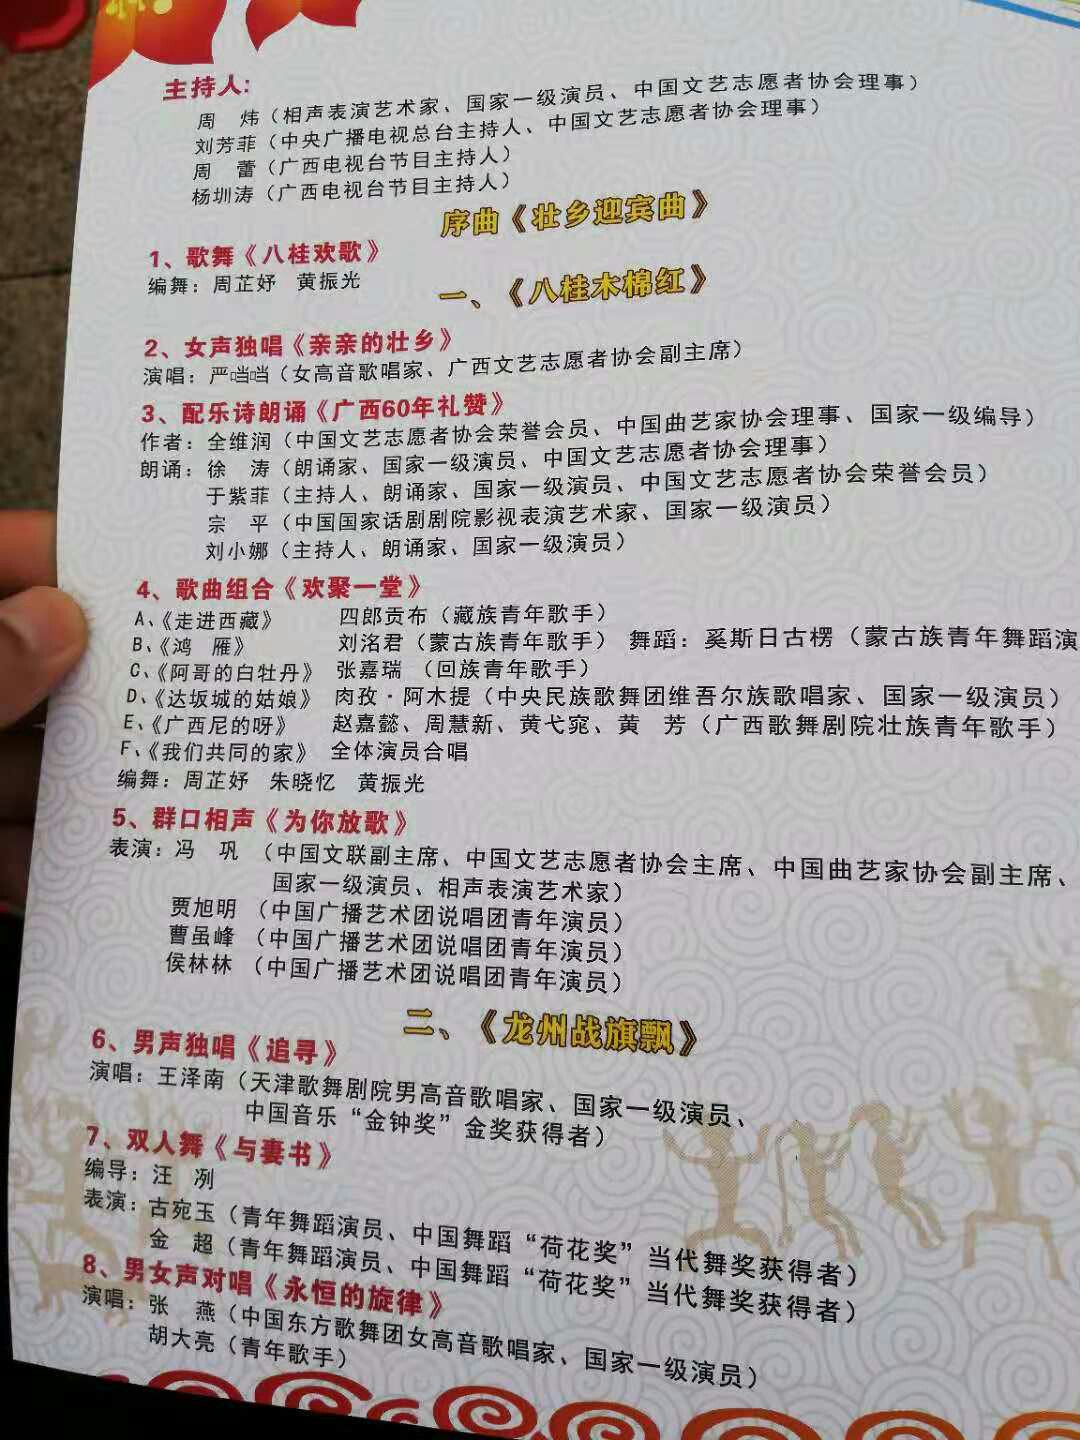 主持人:
周　炜（相声表演艺术家、国家一级演员、中国文艺志愿者协会理事）
刘芳菲（中央广播电视总台主持人、中国文艺志愿者协会理事）
周　蕾（广西电视台节目主持人）
杨圳涛（广西电视台节目主持人）
序曲《壮乡迎宾曲》
1、歌舞《八桂欢歌》
编舞：周芷妤　黄振光
一、《八桂木棉红》
2、女声独唱《亲亲的壮乡》
演唱：严当当（女高音歌唱家、广西文艺志愿者协会副主席）
3、配乐诗朗诵《广西60年礼赞》
作者：全维润（中国文艺志愿者协会荣誉会员、中国曲艺家协会理事、国家一级编导）
朗诵：徐　涛（朗诵家、国家一级演员、中国文艺志愿者协会理事）
于紫菲（主持人、朗诵家、国家一级演员、中国文艺志愿者协会荣誉会员）
宗　平（中国国家话剧剧院影视表演艺术家、国家一级演员）
刘小娜（主持人、朗诵家、国家一级演员）
4、歌曲组合《欢聚一堂》
A、《走进西藏》　四郎贡布（藏族青年歌手）
B、《鸿　雁》　刘洺君（蒙古族青年歌手）　舞蹈：奚斯日古楞（蒙古族青年舞蹈演
C、《阿哥的白牡丹》　张嘉瑞　（回族青年歌手）
D、《达坂城的姑娘》　肉孜·阿木提（中央民族歌舞团维吾尔族歌唱家、国家一级演员）
E、《广西尼的呀》　赵嘉懿、周慧新、黄弋窕、黄　芳（广西歌舞剧院壮族青年歌手）
F、《我们共同的家》　全体演员合唱
编舞：周芷妤　朱晓忆　黄振光
5、群口相声《为你放歌》
表演：冯　巩　（中国文联副主席、中国文艺志愿者协会主席、中国曲艺家协会副主席、
国家一级演员、相声表演艺术家）
贾旭明　（中国广播艺术团说唱团青年演员）
曹虽峰　（中国广播艺术团说唱团青年演员）
侯林林　（中国广播艺术团说唱团青年演员）
二、《龙州战旗飘》
6、男声独唱《追寻》
演唱：王泽南（天津歌舞剧院男高音歌唱家、国家一级演员、
中国音乐“金钟奖”金奖获得者）
7、双人舞《与妻书》
编导：汪　冽
表演：古宛玉（青年舞蹈演员、中国舞蹈“荷花奖”当代舞奖获得者）
金　超（青年舞蹈演员、中国舞蹈“荷花奖”当代舞奖获得者）
8、男女声对唱《永恒的旋律》
演唱：张　燕（中国东方歌舞团女高音歌唱家、国家一级演员）
胡大亮（青年歌手）